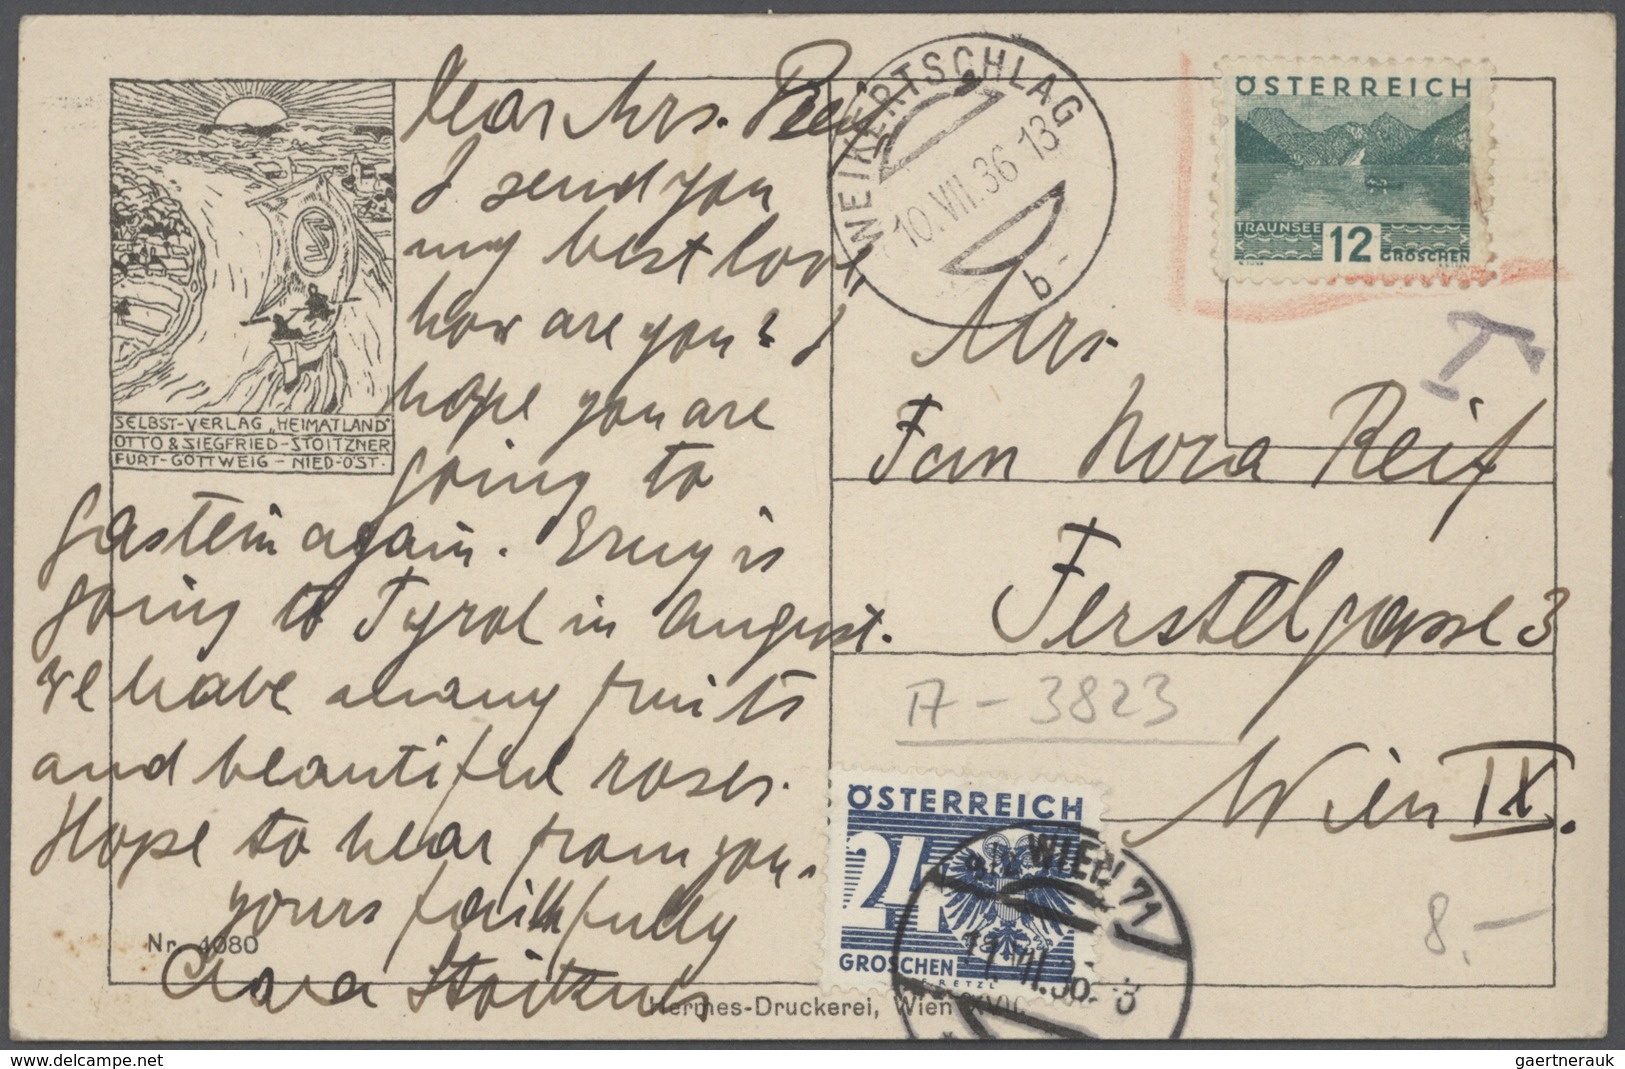 Dear Mrs. Reif
I send you
my best love,
how are you? I
hope you are
going to
Gastein again. Erny is
going to Tyrol in August.
We have many fruits
and beautiful roses.
Hope to hear from you.
yours faithfully
Clara Stoitzner
SELBST-VERLAG „HEIMATLAND"
OTTO & SIEGFRIED-STOITZNER
FURT-GÖTTWEIG - NIED-ÖST.
Nr. 4080
Hermes-Druckerei, Wien XVII.
WEIKERTSCHLAG
10.VII.36 13
b
ÖSTERREICH
TRAUNSEE
12
GROSCHEN
T
Mrs
Nora Reif
Ferstelgasse 3
A - 3823
Wien IX.
ÖSTERREICH
24
GROSCHEN
9/2 WIEN 71
8.-
gaertnerauk